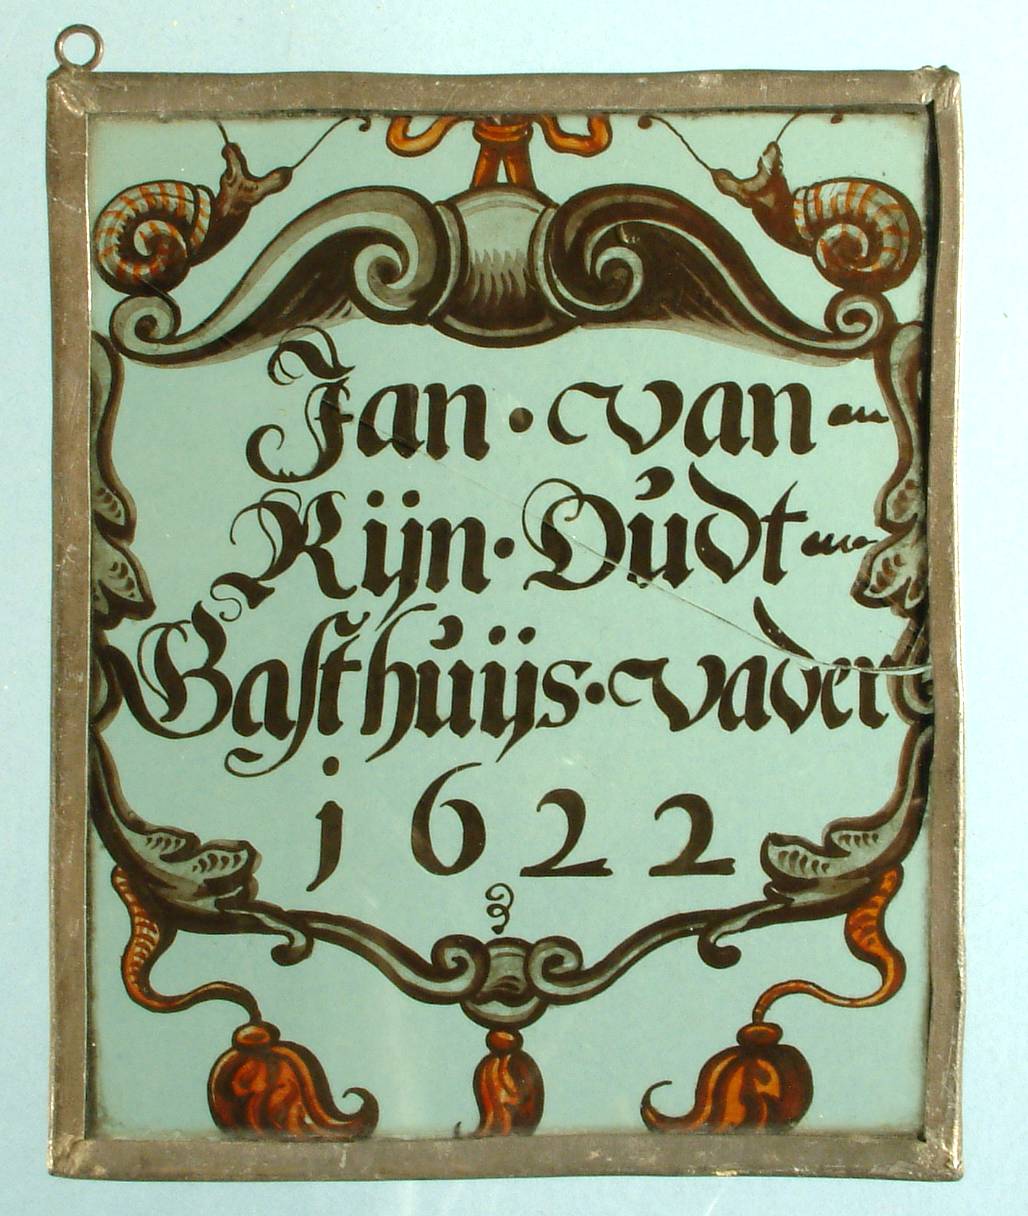 Jan · van
Rijn · Oudt
Gasthuijs · vader
1622